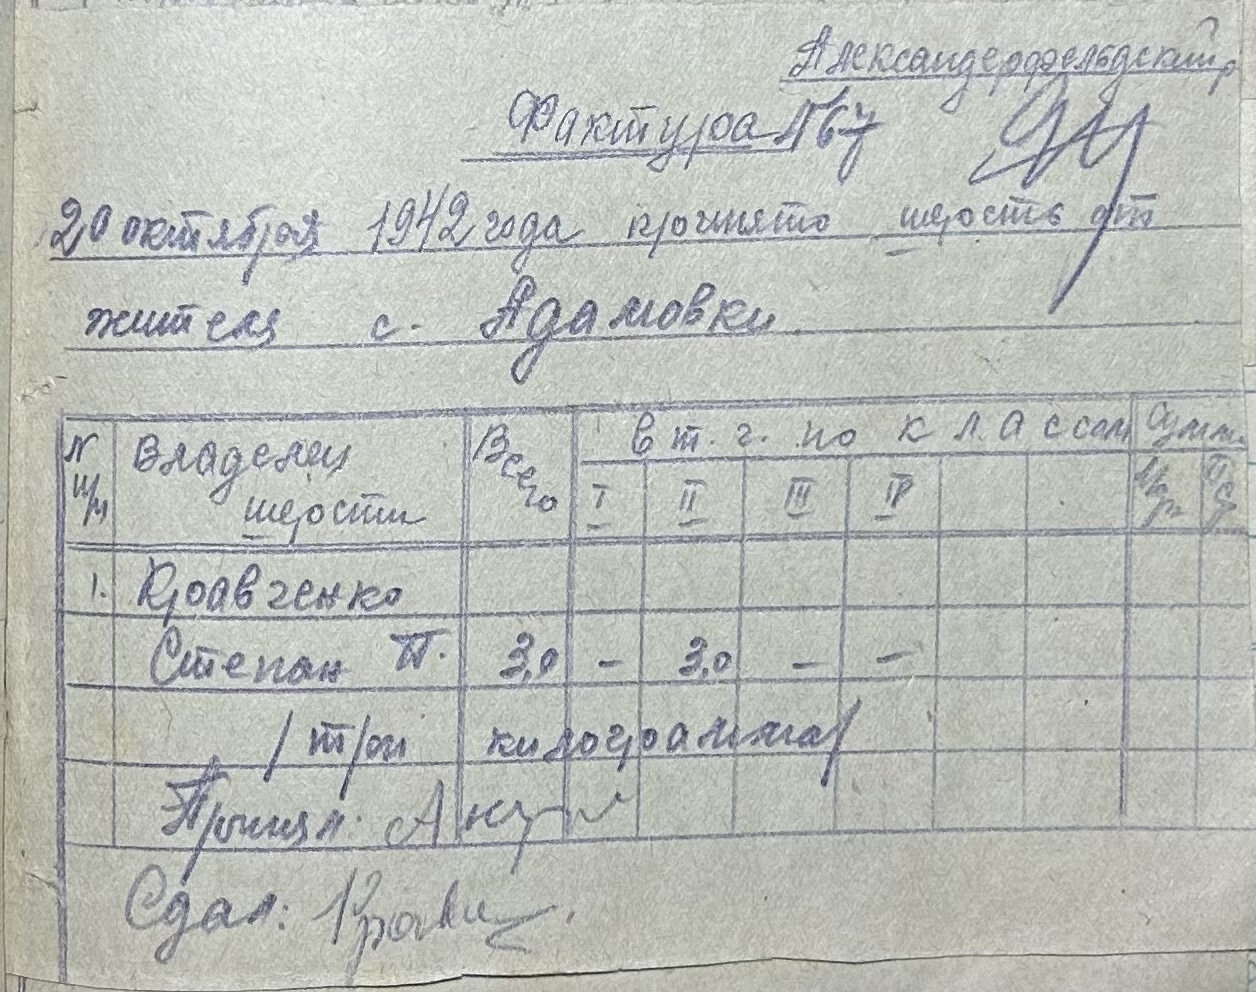 Александерфельдский р
Фактура №67
20 октября 1942 года принято шерсть от
жителя с. Адамовки
N п/п Владелец шерсти Всего в т. ч. по классам Сумма
I II III IV
1. Кравченко
Степан П. 3,0 – 3,0 – –
/три килограмма/
Принял:
Сдал: